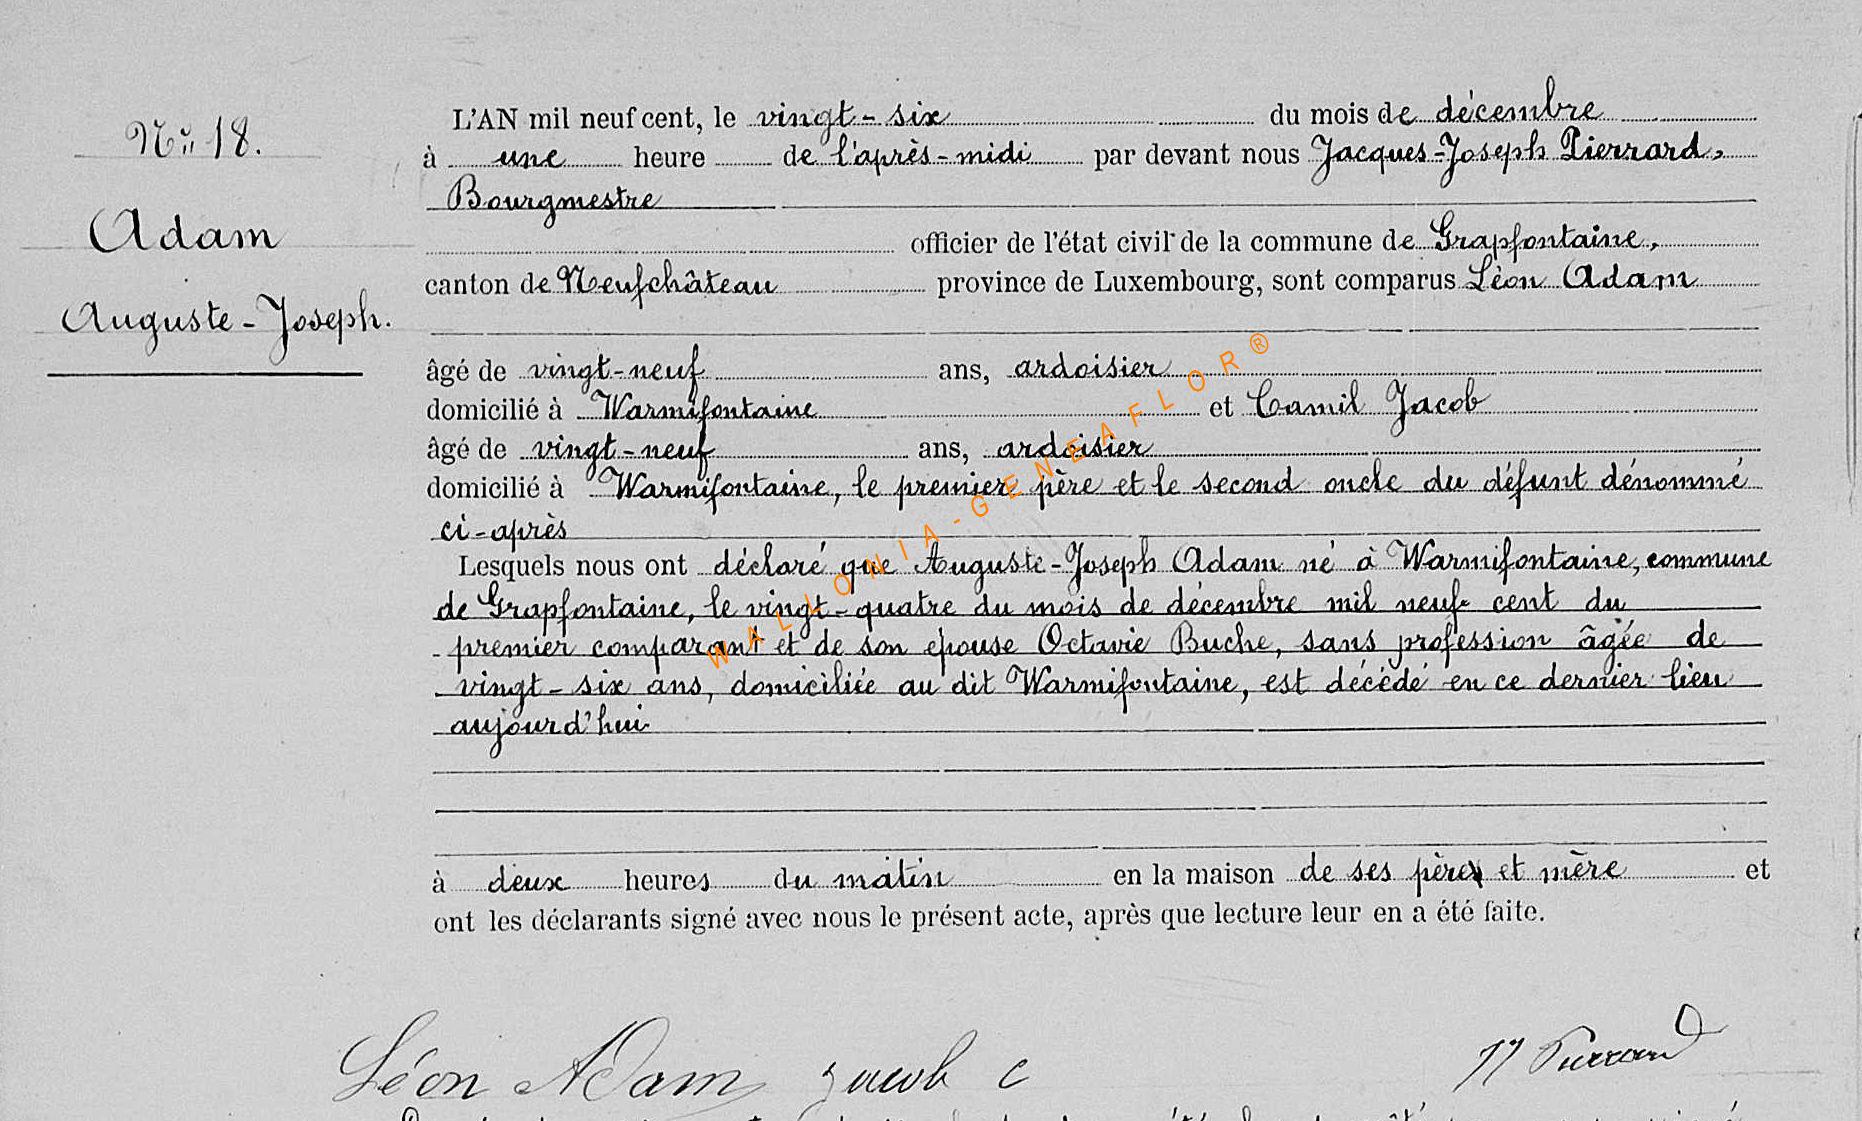 N° 18.
Adam
Auguste-Joseph.
L'AN mil neuf cent, le vingt-six du mois de décembre
à une heure de l'après-midi par devant nous Jacques-Joseph Pierrard,
Bourgmestre
officier de l'état civil de la commune de Grapfontaine,
canton de Neufchâteau province de Luxembourg, sont comparus Léon Adam
âgé de vingt-neuf ans, ardoisier
domicilié à Warmifontaine et Camil Jacob
âgé de vingt-neuf ans, ardoisier
domicilié à Warmifontaine, le premier père et le second oncle du défunt dénommé
ci-après
Lesquels nous ont déclaré que Auguste-Joseph Adam né à Warmifontaine, commune
de Grapfontaine, le vingt-quatre du mois de décembre mil neuf cent du
premier comparant et de son épouse Octavie Buche, sans profession âgée de
vingt-six ans, domiciliée au dit Warmifontaine, est décédé en ce dernier lieu
aujourd'hui
à deux heures du matin en la maison de ses père et mère et
ont les déclarants signé avec nous le présent acte, après que lecture leur en a été faite.
Léon Adam Jacob c JJ Pierrard
WALLONIA-GENEAFLOR®